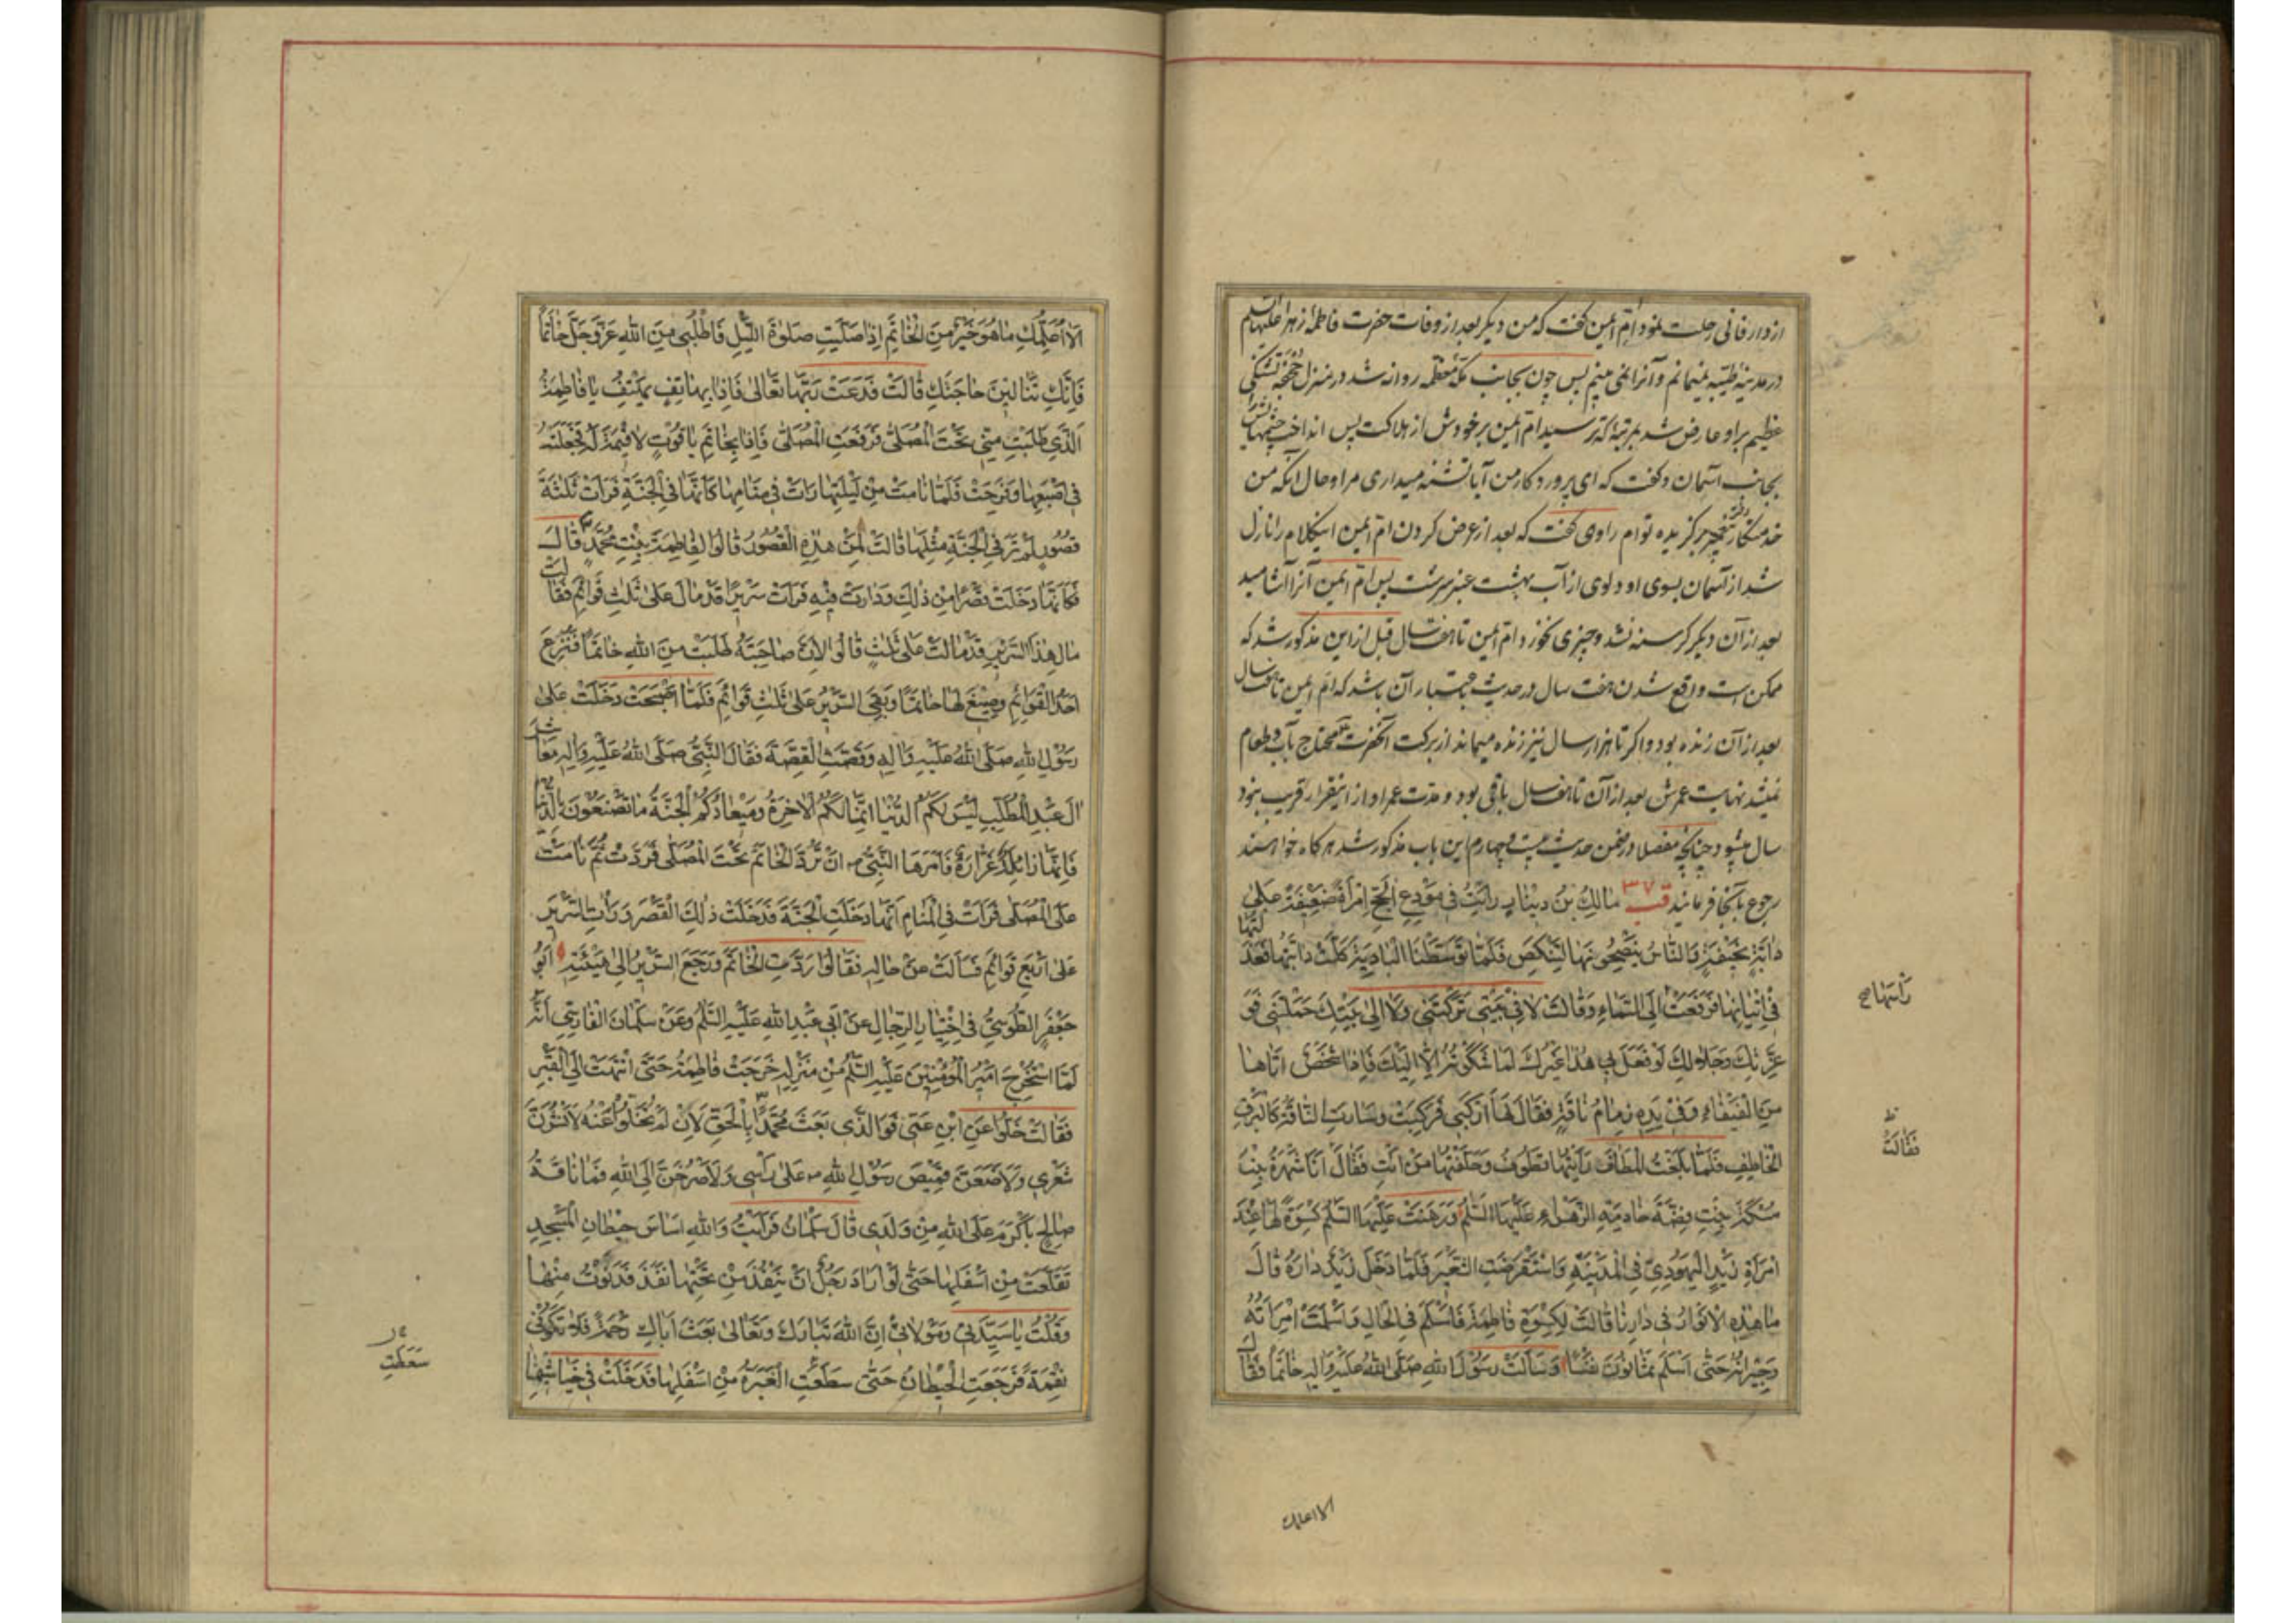 از دار فانی رحلت نمود ام ایمن گفت که من دیگر بعد از وفات حضرت فاطمهٔ زهرا علیها السلم
در مدینهٔ طیبه نمیمانم و آنرا نمی بینم پس چون بجانب مکهٔ معظمه روانه شد در منزل جحفه تشنکی
عظیم براو عارض شد بمرتبهٔ که ترسید ام ایمن برخودش از هلاکت پس انداخت چشمهایش را
بجانب آسمان و گفت که ای پروردکار من آیا تشنه میداری مرا و حال آنکه من
خدمتکار دختر پیغمبر برکزیده توام راوی گفت که بعد از عرض کردن ام ایمن اینکلام را نازل
شد از آسمان بسوی او دلوی از آب بهشت عنبر سرشت پس ام ایمن آنرا آشامید
بعد از آن دیکر کرسنه نشد و چیزی نخورد ام ایمن تا هفت سال قبل از این مذکور شد که
ممکن است واقع شدن هفت سال در حدیث باعتبار آن باشد که ام ایمن تا هفت سال
بعد از آن زنده بود و اکر تا هزار سال نیز زنده میماند از برکت آنحضرت محتاج بآب و طعام
نمیشد نهایت عمرش بعد از آن تا هفت سال باقی بود و مدت عمر او از اینقرار قریب بنود
سال میشود چنانچه مفصلا در ضمن حدیث بیست و چهارم این باب مذکور شد هرکاه خواهند
رجوع بآنجا فرمایند قب ۳۷ مٰالِكُ بنُ دینٰارٍ رَاَیْتُ فی مَوْدِعِ الحَجِّ اِمْرَأَةً ضَعِیفَةً عَلیٰ
دٰابَّةٍ نَحِیفَةٍ وَ النّٰاسُ یَنْصَحُونَهٰا لِتَنْكُصَ فَلَمّٰا تَوَسَّطْنَا الْبٰادِیَةَ كَلَّتْ دٰابَّتُهٰا فَعَذَلْتُهٰا
فی اِتْیٰانِهٰا فَرَفَعَتْ اِلَی السَّمٰاءِ وَ قٰالَتْ لٰا فی بَیْتی تَرَكْتَنی وَ لٰا اِلیٰ بَیْتِكَ حَمَلْتَنی فَوَ
رَأْسَهٰا صح
عِزَّتِكَ وَ جَلٰالِكَ لَوْ فَعَلَ بی هٰذٰا غَیْرُكَ لَمٰا شَكَوْتُهُ اِلّٰا اِلَیْكَ فَاِذٰا شَخْصٌ اَتٰاهٰا
مِنَ الْفَیْفٰاءِ وَ فی یَدِهِ زِمٰامُ نٰاقَةٍ فَقٰالَ لَهٰا اِرْكَبی فَرَكِبَتْ وَ سٰارَتِ النّٰاقَةُ كَالْبَرْقِ
الْخٰاطِفِ فَلَمّٰا بَلَغَتُ الْمَطٰافَ رَاَیْتُهٰا تَطُوفُ وَ حَلَّفْتُهٰا مَنْ اَنْتِ فَقٰالَ اَنَا شُهْرَةُ بِنْتُ
ظ
فَقٰالَتْ
مُسْكَةَ بِنْتِ فِضَّةَ خٰادِمَةِ الزَّهْرٰاءِ عَلَیْهَا السَّلمُ وَ رَهَنَتْ عَلَیْهَا السَّلمُ كِسْوَةً لَهٰا عِنْدَ
امْرَأَةِ زَیْدٍ الْیَهُودِیِّ فِی الْمَدِینَةِ وَ اسْتَقْرَضَتِ الشَّعیرَ فَلَمّٰا دَخَلَ زَیْدٌ دٰارَهُ قٰالَ
مٰا هٰذِهِ الْاَنْوٰارُ فی دٰارِنٰا قٰالَتْ لِكِسْوَةِ فٰاطِمَةَ فَاَسْلَمَ فِی الْحٰالِ وَ اَسْلَمَتْ اِمْرَأَتُهُ
وَ جیرٰانُهُ حَتّیٰ اَسْلَمَ ثَمٰانُونَ نَفْسًا وَ سَاَلَتْ رَسُولَ اللهِ صَلَّی اللهُ عَلَیْهِ وَ اٰلِهِ خٰاتَمًا فَقٰالَ
الا اعلمك
اَلٰا اُعَلِّمُكِ مٰا هُوَ خَیْرٌ مِنَ الْخٰاتَمِ اِذٰا صَلَّیْتِ صَلوٰةَ اللَّیْلِ فَاطْلُبی مِنَ اللهِ عَزَّ وَ جَلَّ خٰاتَمًا
فَاِنَّكِ تَنٰالینَ حٰاجَتَكِ قٰالَتْ فَدَعَتْ رَبَّهٰا تَعٰالیٰ فَاِذٰا بِهٰاتِفٍ یَهْتِفُ یٰا فٰاطِمَةُ
الَّذی طَلَبْتِ مِنّی تَحْتَ الْمُصَلّیٰ فَرَفَعَتِ الْمُصَلّیٰ فَاِذٰا بِخٰاتَمِ یٰاقُوتٍ لٰا قیمَةَ لَهُ فَجَعَلَتْهُ
فی اِصْبَعِهٰا وَ فَرِحَتْ فَلَمّٰا نٰامَتْ مِنْ لَیْلَتِهٰا رَاَتْ فی مَنٰامِهٰا كَاَنَّهٰا فِی الْجَنَّةِ فَرَاَتْ ثَلٰثَةَ
قُصُورٍ لَمْ تَرَ فِی الْجَنَّةِ مِثْلَهٰا قٰالَتْ لِمَنْ هٰذِهِ الْقُصُورُ قٰالُوا لِفٰاطِمَةَ بِنْتِ مُحَمَّدٍ قٰالَ
فَكَاَنَّهٰا دَخَلَتْ قَصْرًا مِنْ ذٰلِكَ وَ دٰارَتْ فیهِ فَرَاَتْ سَریرًا قَدْ مٰالَ عَلیٰ ثَلٰثِ قَوٰائِمَ فَقٰالَتْ
مٰال هٰذَا السَّریرِ قَدْ مٰالَتْ عَلیٰ ثَلٰثٍ قٰالُوا لِاَنَّ صٰاحِبَتَهُ طَلَبَتْ مِنَ اللهِ خٰاتَمًا فَنُزِعَ
اَحَدُ الْقَوٰائِمِ وَ صیغَ لَهٰا خٰاتَمًا وَ بَقِیَ السَّریرُ عَلیٰ ثَلٰثِ قَوٰائِمَ فَلَمّٰا اَصْبَحَتْ دَخَلَتْ عَلیٰ
رَسُولِ اللهِ صَلَّی اللهُ عَلَیْهِ وَ اٰلِهِ وَ قَصَّتِ الْقِصَّةَ فَقٰالَ النَّبِیُّ صَلَّی اللهُ عَلَیْهِ وَ اٰلِهِ مَعٰاشِرَ
اٰلَ عَبْدِ الْمُطَّلِبِ لَیْسَ لَكُمُ الدُّنْیٰا اِنَّمٰا لَكُمُ الْاٰخِرَةُ وَ میعٰادُكُمُ الْجَنَّةُ مٰا تَصْنَعُونَ بِالدُّنْیٰا
فَاِنَّهٰا زٰائِلَةٌ غَرّٰارَةٌ فَاَمَرَهَا النَّبِیُّ ص اَنْ تَرُدَّ الْخٰاتَمَ تَحْتَ الْمُصَلّیٰ فَرَدَّتْ ثُمَّ نٰامَتْ
عَلَی الْمُصَلّیٰ فَرَاَتْ فِی الْمَنٰامِ اَنَّهٰا دَخَلَتِ الْجَنَّةَ فَدَخَلَتْ ذٰلِكَ الْقَصْرَ وَ رَاَتِ السَّریرَ
عَلیٰ اَرْبَعِ قَوٰائِمَ فَسَاَلَتْ عَنْ حٰالِهِ فَقٰالُوا رَدَدْتِ الْخٰاتَمَ وَ رَجَعَ السَّریرُ اِلیٰ هَیْئَتِهِ اَبُو
جَعْفَرٍ الطُّوسِیُّ فِی اخْتِیٰارِ الرِّجٰالِ عَنْ اَبی عَبْدِ اللهِ عَلَیْهِ السَّلمُ وَ عَنْ سَلْمٰانَ الْفٰارِسِیِّ اَنَّهُ
لَمَّا اسْتُخْرِجَ اَمیرُ الْمُؤْمِنینَ عَلَیْهِ السَّلمُ مِنْ مَنْزِلِهِ خَرَجَتْ فٰاطِمَةُ حَتّیٰ انْتَهَتْ اِلَی الْقَبْرِ
فَقٰالَتْ خَلُّوا عَنِ ابْنِ عَمّی فَوَ الَّذی بَعَثَ مُحَمَّدًا بِالْحَقِّ لَاِنْ لَمْ تُخَلُّوا عَنْهُ لَاَنْشُرَنَّ
شَعْری وَ لَاَضَعَنَّ قَمیصَ رَسُولِ اللهِ ص عَلیٰ رَأْسی وَ لَاَصْرُخَنَّ اِلَی اللهِ فَمٰا نٰاقَةُ
صٰالِحٍ بِاَكْرَمَ عَلَی اللهِ مِنْ وَلَدی قٰالَ سَلْمٰانُ فَرَاَیْتُ وَ اللهِ اَسٰاسَ حیطٰانِ الْمَسْجِدِ
تَقَلَّعَتْ مِنْ اَسْفَلِهٰا حَتّیٰ لَوْ اَرٰادَ رَجُلٌ اَنْ یَنْفُذَ مِنْ تَحْتِهٰا نَفَذَ فَدَنَوْتُ مِنْهٰا
وَ قُلْتُ یٰا سَیِّدَتی وَ مَوْلٰاتی اِنَّ اللهَ تَبٰارَكَ وَ تَعٰالیٰ بَعَثَ اَبٰاكِ رَحْمَةً فَلٰا تَكُونی
نَقِمَةً فَرَجَعَتِ الْحیطٰانُ حَتّیٰ سَطَعَتِ الْغَبَرَةُ مِنْ اَسْفَلِهٰا فَدَخَلَتْ فی خَیٰاشیمِهٰا
سَطَعَتِ